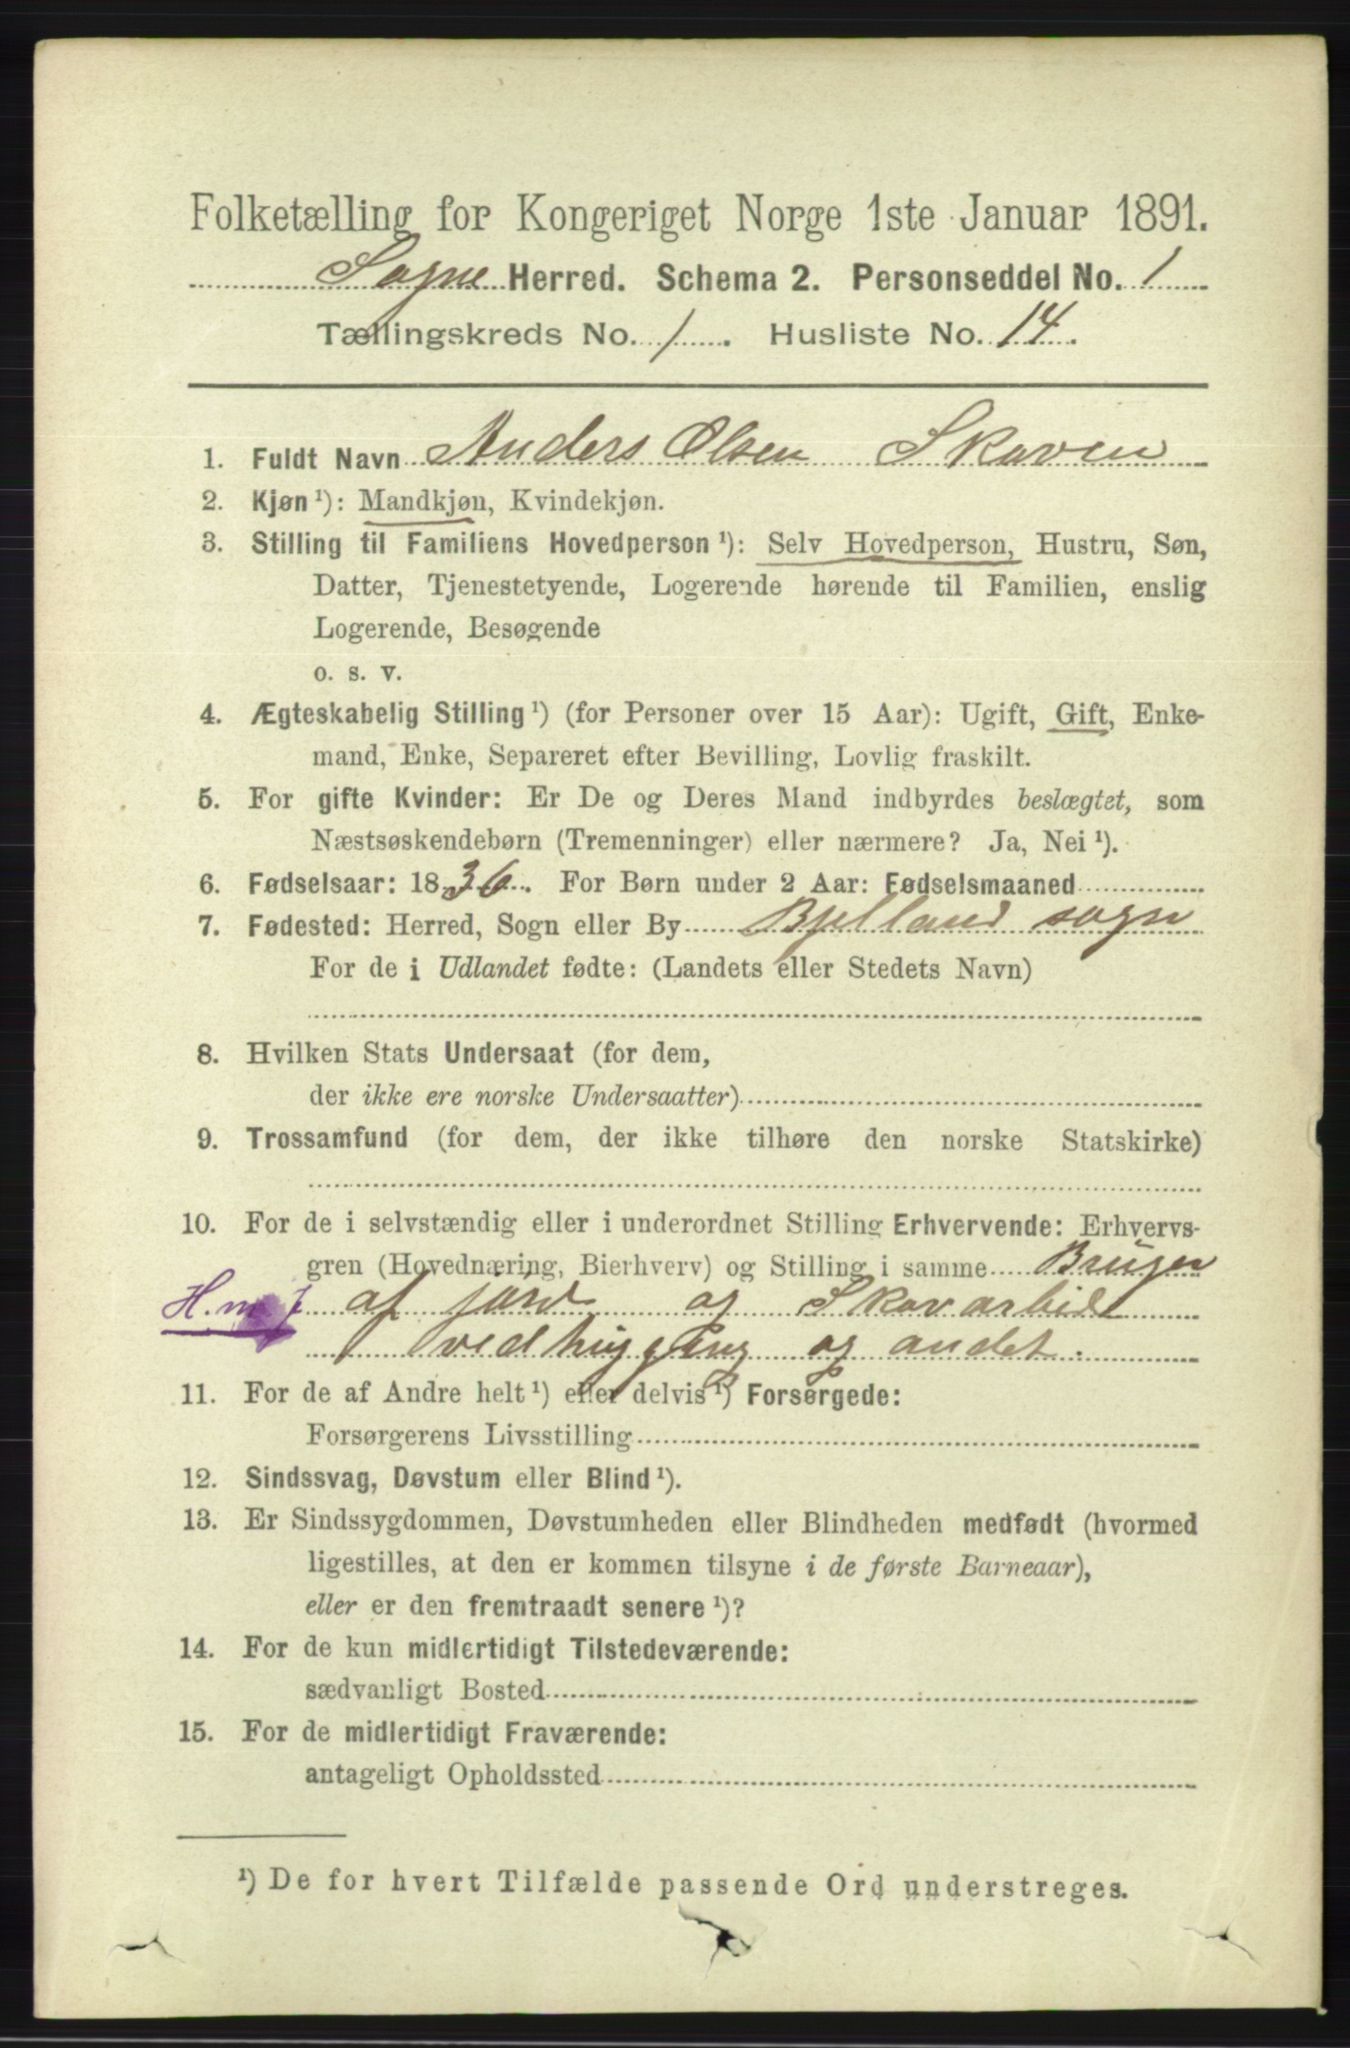 Folketælling for Kongeriget Norge 1ste Januar 1891.
Sogne Herred. Schema 2. Personseddel No. 1
Tællingskreds No. 1. Husliste No. 14.
1. Fuldt Navn Anders Olsen Skoven
2. Kjøn ¹): Mandkjøn, Kvindekjøn.
3. Stilling til Familiens Hovedperson ¹): Selv Hovedperson, Hustru, Søn,
Datter, Tjenestetyende, Logerende hørende til Familien, enslig
Logerende, Besøgende
o. s. v.
4. Ægteskabelig Stilling ¹) (for Personer over 15 Aar): Ugift, Gift, Enke-
mand, Enke, Separeret efter Bevilling, Lovlig fraskilt.
5. For gifte Kvinder: Er De og Deres Mand indbyrdes beslægtet, som
Næstsøskendebørn (Tremenninger) eller nærmere? Ja, Nei ¹).
6. Fødselsaar: 1836. For Børn under 2 Aar: Fødselsmaaned
7. Fødested: Herred, Sogn eller By Bjelland sogn
For de i Udlandet fødte: (Landets eller Stedets Navn)
8. Hvilken Stats Undersaat (for dem,
der ikke ere norske Undersaatter)
9. Trossamfund (for dem, der ikke tilhøre den norske Statskirke)
10. For de i selvstændig eller i underordnet Stilling Erhvervende: Erhvervs-
gren (Hovednæring, Bierhverv) og Stilling i samme Bruger
H. m. af jord og Skovarbide
vedhugging og andet.
11. For de af Andre helt ¹) eller delvis ¹) Forsørgede:
Forsørgerens Livsstilling
12. Sindssvag, Døvstum eller Blind ¹).
13. Er Sindssygdommen, Døvstumheden eller Blindheden medfødt (hvormed
ligestilles, at den er kommen tilsyne i de første Barneaar),
eller er den fremtraadt senere ¹)?
14. For de kun midlertidigt Tilstedeværende:
sædvanligt Bosted
15. For de midlertidigt Fraværende:
antageligt Opholdssted
¹) De for hvert Tilfælde passende Ord understreges.